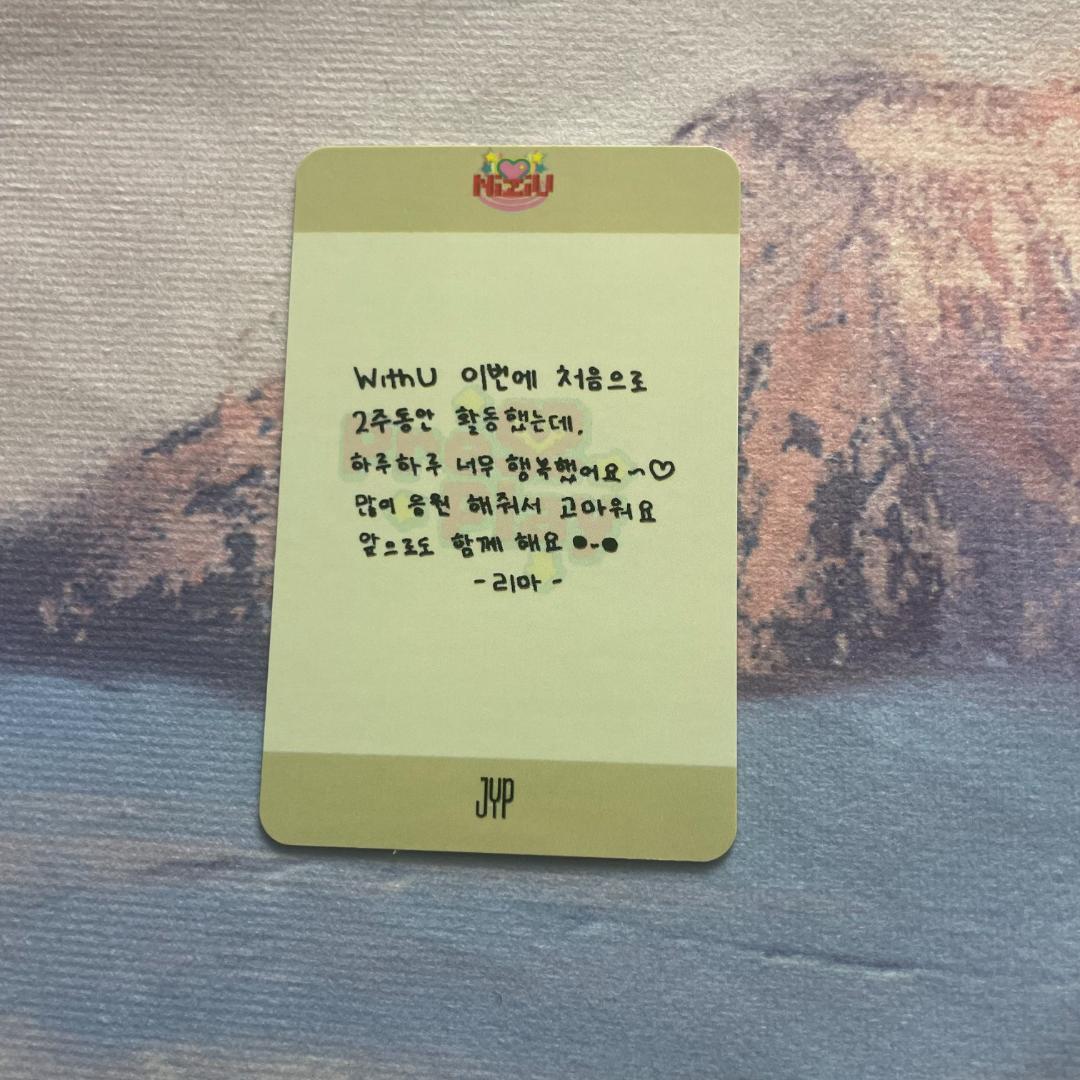 NiziU
WithU 이번에 처음으로
2주동안 활동했는데,
하루하루 너무 행복했어요~♡
많이 응원 해줘서 고마워요
앞으로도 함께 해요 •᷄-•
-리마-
Press Play
JYP